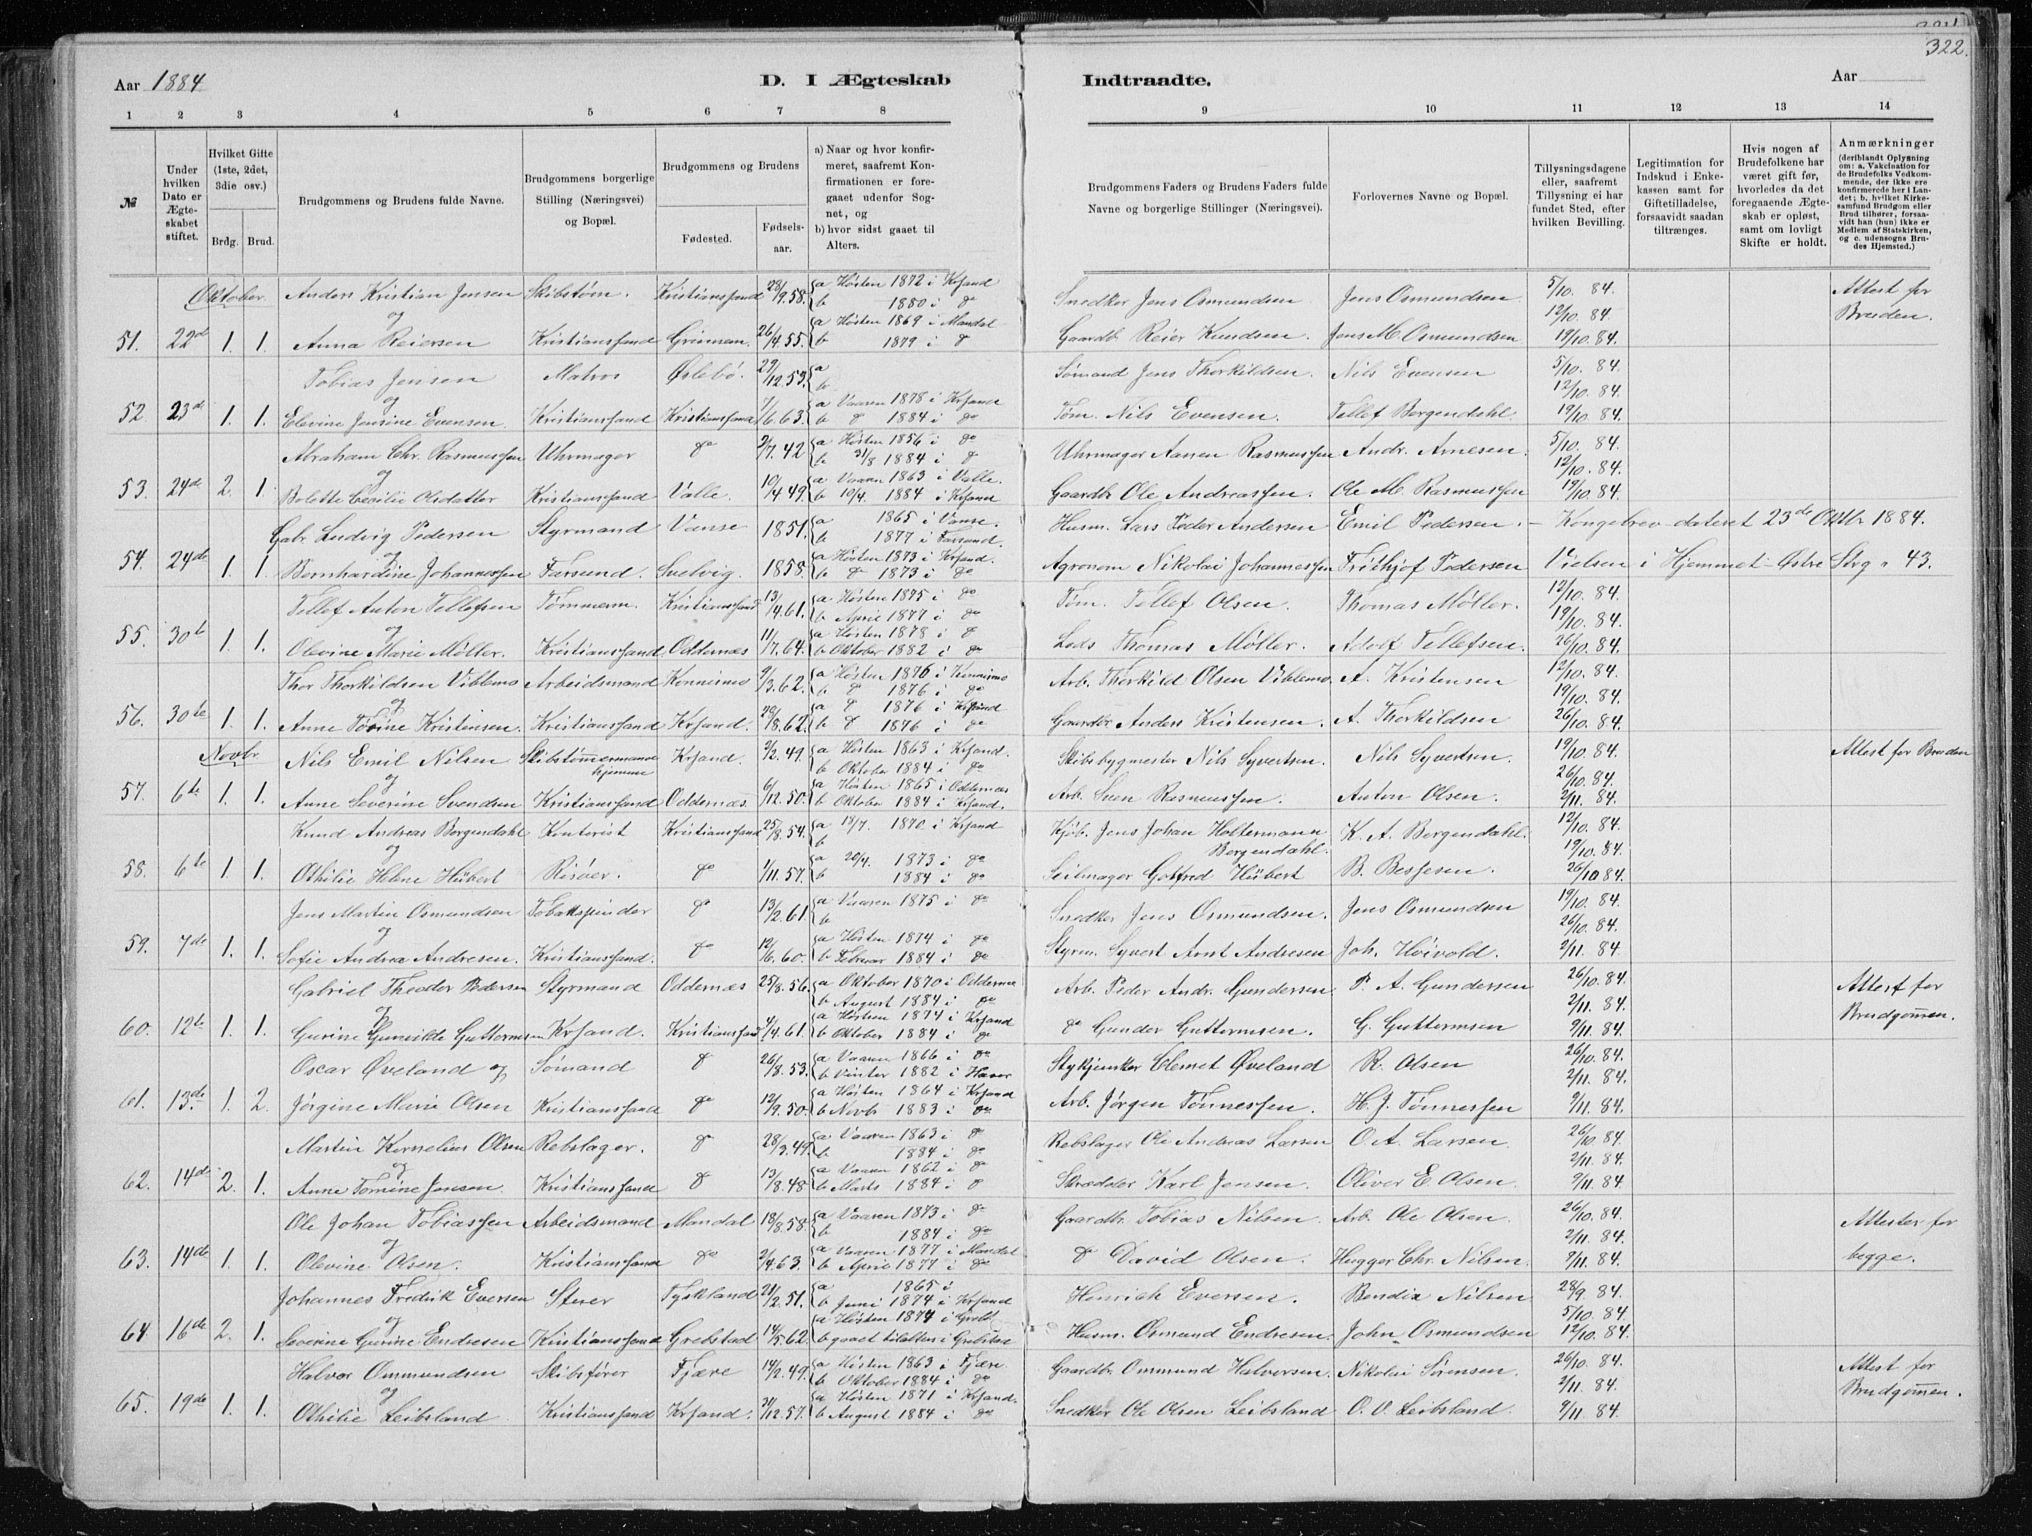 Aar 1884 D. I Ægteskab Indtraadte. Aar 322.
1 2 3 4 5 6 7 8 9 10 11 12 13 14
№
Under hvilken Dato er Ægteskabet stiftet.
Hvilket Gifte (1ste, 2det, 3die osv.)
Brdg. Brud.
Brudgommens og Brudens fulde Navne.
Brudgommens borgerlige Stilling (Næringsvei) og Bopæl.
Brudgommens og Brudens
Fødested. Fødselsaar.
a) Naar og hvor konfirmeret, saafremt Konfirmationen er foregaaet udenfor Sognet, og
b) hvor sidst gaaet til Alters.
Brudgommens Faders og Brudens Faders fulde Navne og borgerlige Stillinger (Næringsvei).
Forlovernes Navne og Bopæl.
Tillysningsdagene eller, saafremt Tillysning ei har fundet Sted, efter hvilken Bevilling.
Legitimation for Indskud i Enkekassen samt for Giftetilladelse, forsaavidt saadan tiltrænges.
Hvis nogen af Brudefolkene har været gift før, hvorledes da det foregaaende Ægteskab er opløst, samt om lovligt Skifte er holdt.
Anmærkninger (deriblandt Oplysning om: a. Vakcination for de Brudefolks Vedkommende, der ikke ere konfirmerede her i Landet; b. hvilket Kirkesamfund Brudgom eller Brud tilhører, forsaavidt han (hun) ikke er Medlem af Statskirken, og c. udensogns Brudes Hjemsted.)
Oktober. Anders Kristian Jensen Skibstøm. Kristianssand 28/9.58. a Høsten 1872 i Krsand b 1880 i do Snedker Jens Osmundsen Jens Osmundsen 5/10. 84. 12/10. 84. Attest for Bruden.
51. 22de 1. 1. og Anna Reiersen Kristianssand 26/4.55. a Høsten 1869 i Mandal b 1879 i do Gaardb. Reier Knudsen. Jens M. Osmundsen 19/10. 84.
Tobias Jensen Matros Øslebø. 29/12.59. a b Sømand Jens Thorkildsen. Nils Evensen 5/10. 84. 12/10. 84.
52 23de 1. 1. og Elevine Jensine Evensen Kristianssand Kristianssand 7/6.63. a Vaaren 1878 i Krsand b do 1884 i do Tøm. Nils Evensen. Tellef Bergendahl 19/10. 84.
Abraham Chr. Rasmussen Uhrmager do 2/7.42 a Høsten 1856 i do b 31/8 1884 i do Uhrmager Aanen Rasmussen Andr. Arnesen. 5/10. 84. 12/10. 84.
53. 24de 2. 1. og Bolette Cecilie Olsdatter Kristianssand Valle. 10/4.49. a Vaaren 1863 i Valle. b 10/4. 1884 i Krsand Gaardb. Ole Andreassen. Ole M. Rasmussen 19/10. 84.
Gabr. Ludvig Pedersen Styrmand Vanse 1851. a 1865 i Vanse. b 1877 i Farsund. Husm. Lars Peder Andersen Emil Pedersen. — Kongebrev dateret 23de Oktbr 1884.
54. 24de 1. 1. og Bernhardine Johannessen Farsund. Svelvig. 1858. a Høsten 1873 i Krsand. b do 1873 i do Agronom Nikolai Johannessen Frithjof Pedersen Vielsen i Hjemmet Østre Strg. 43.
Tellef Anton Tellefsen Tømmerm. Kristianssand 13/4.61. a Høsten 1875 i do b April 1877 i do Tøm. Tellef Olsen. Thomas Møller. 12/10. 84. 19/10. 84.
55. 30te 1. 1. og Olevine Marie Møller. Kristianssand Oddernæs 11/7.64. a Høsten 1878 i do b Oktober 1882 i do Lods Thomas Møller. Adolf Tellefsen. 26/10. 84.
Thor Thorkildsen Viblemo Arbeidsmand Konnismo 9/3.62. a Høsten 1876 i Konnismo b do 1876 i do Arb. Thorkild Olsen Viblemo. A. Kristensen 12/10. 84. 19/10. 84.
56. 30te 1. 1. og Anne Tørine Kristensen. Kristianssand Krsand. 29/8.62. a do 1876 i Krsand b do 1876 i do Gaardbr Anders Kristensen. A. Thorkildsen 26/10. 84.
Novbr Nils Emil Nilsen Skibstømmermand hjemme Krsand. 9/2.49. a Høsten 1863 i Krsand. b Oktober 1884 i do Skibsbygmester Nils Syvertsen. Nils Syvertsen 19/10. 84. 26/10. 84. Attest for Bruden
57. 6te 1. 1. og Anne Severine Svendsen Kristianssand Oddernæs. 6/12.50. a Høsten 1865 i Oddernæs b Oktober 1884 i Krsand. Arb. Sven Rasmussen. Anton Olsen. 2/11. 84.
Knud Andreas Bergendahl Kontorist Kristianssand 25/8.54. a 13/7. 1870 i Krsand b Kjøb. Jens Johan Holtermann Bergendahl. K. A. Bergendahl. 12/10. 84. 19/10. 84.
58. 6te 1. 1. og Othilie Helene Hübert Risøer. do 1/11.57. a 20/4. 1873 i do b 1884 i do Seilmager Gotfred Hübert B. Bessesen. 26/10 84.
Jens Martin Osmundsen Tobakspinder do 13/2.61. a Vaaren 1875 i do b Snedker Jens Osmundsen. Jens Osmundsen 19/10. 84. 26/10. 84.
59. 7de 1. 1. og Sofie Andrea Andresen. Kristianssand. do 12/6.60. a Høsten 1874 i do b Februar 1884 i do Styrm. Syvert Arnt Andresen Joh. Høivold. 2/11. 84.
Gabriel Theodor Pedersen Styrmand Oddernæs 25/8.56. a Oktober 1870 i Oddernæs b August 1884 i do Arb. Peder Andr. Gundersen P. A. Gundersen 26/10. 84. 2/11. 84. Attest for Brudgommen.
60. 12te 1. 1. og Gurine Gunvilde Guttormsen Krsand. Kristianssand 4/4.61. a Høsten 1874 i Krsand b Oktober 1884 i do do Gunder Guttormsen. G. Guttormsen 9/11. 84.
Oscar Øveland og Sømand do 26/8.53. a Vaaren 1866 i do b Vinter 1882 i Havre Stykjunker Clemet Øveland R. Olsen 26/10. 84. 2/11. 84.
61. 13de 1. 2. Jørgine Marie Olsen Kristianssand do 12/9.50. a Høsten 1864 i Krsand b Novbr 1883 i do Arb. Jørgen Tønnessen. H. J. Tønnessen 9/11. 84.
Martin Kornelius Olsen Rebslager. do 28/3.49. a Vaaren 1863 i do b 1884 i do Rebslager Ole Andreas Larsen O. A. Larsen. 26/10. 84. 2/11. 84.
62. 14de 2. 1. og Anne Tomine Jensen Kristianssand do 13/8.48 a Vaaren 1862 i do b Marts 1884 i do Skrædder Karl Jensen. Oliver E. Olsen. 9/11. 84.
Ole Johan Tobiassen Arbeidsmand Mandal 18/8.58. a Vaaren 1873 i do b 1884 i do Gaardb. Tobias Nilsen Arb. Ole Olsen. 26/10. 84. 2/11. 84. Attester for begge.
63. 14de 1. 1. og Olevine Olsen. Kristianssand do 2/4.63. a Vaaren 1877 i Mandal b April 1877 i do do David Olsen. Hugger Chr. Nilsen. 9/11. 84.
Johannes Fredrik Eversen Stuer Tyskland 21/2.51. a 1865 i b Juni 1874 i Krsand Henrich Eversen. Bendix Nilsen 28/9. 84. 5/10. 84.
64. 16de 2. 1. og Severine Gurine Endresen. Kristianssand Grebstad 14/5.62. a Høsten 1877 i b gaaet til alters i Husm. Osmund Endresen. John Osmundsen 12/10. 84.
Halvor Ommundsen Skibsfører Fjære 14/2.49. a Høsten 1863 i Fjære b Oktober 1884 i do Gaardb. Ommund Halvorsen Nikolai Sørensen 26/10. 84. 2/11. 84. Attest for Brudgommen.
65. 19de 1. 1. og Othilie Leibsland Kristianssand Krsand. 31/12.57. a Høsten 1871 i Krsand. b August 1884 i do Snedker Ole Olsen Leibsland O. O. Leibsland. 9/11. 84.